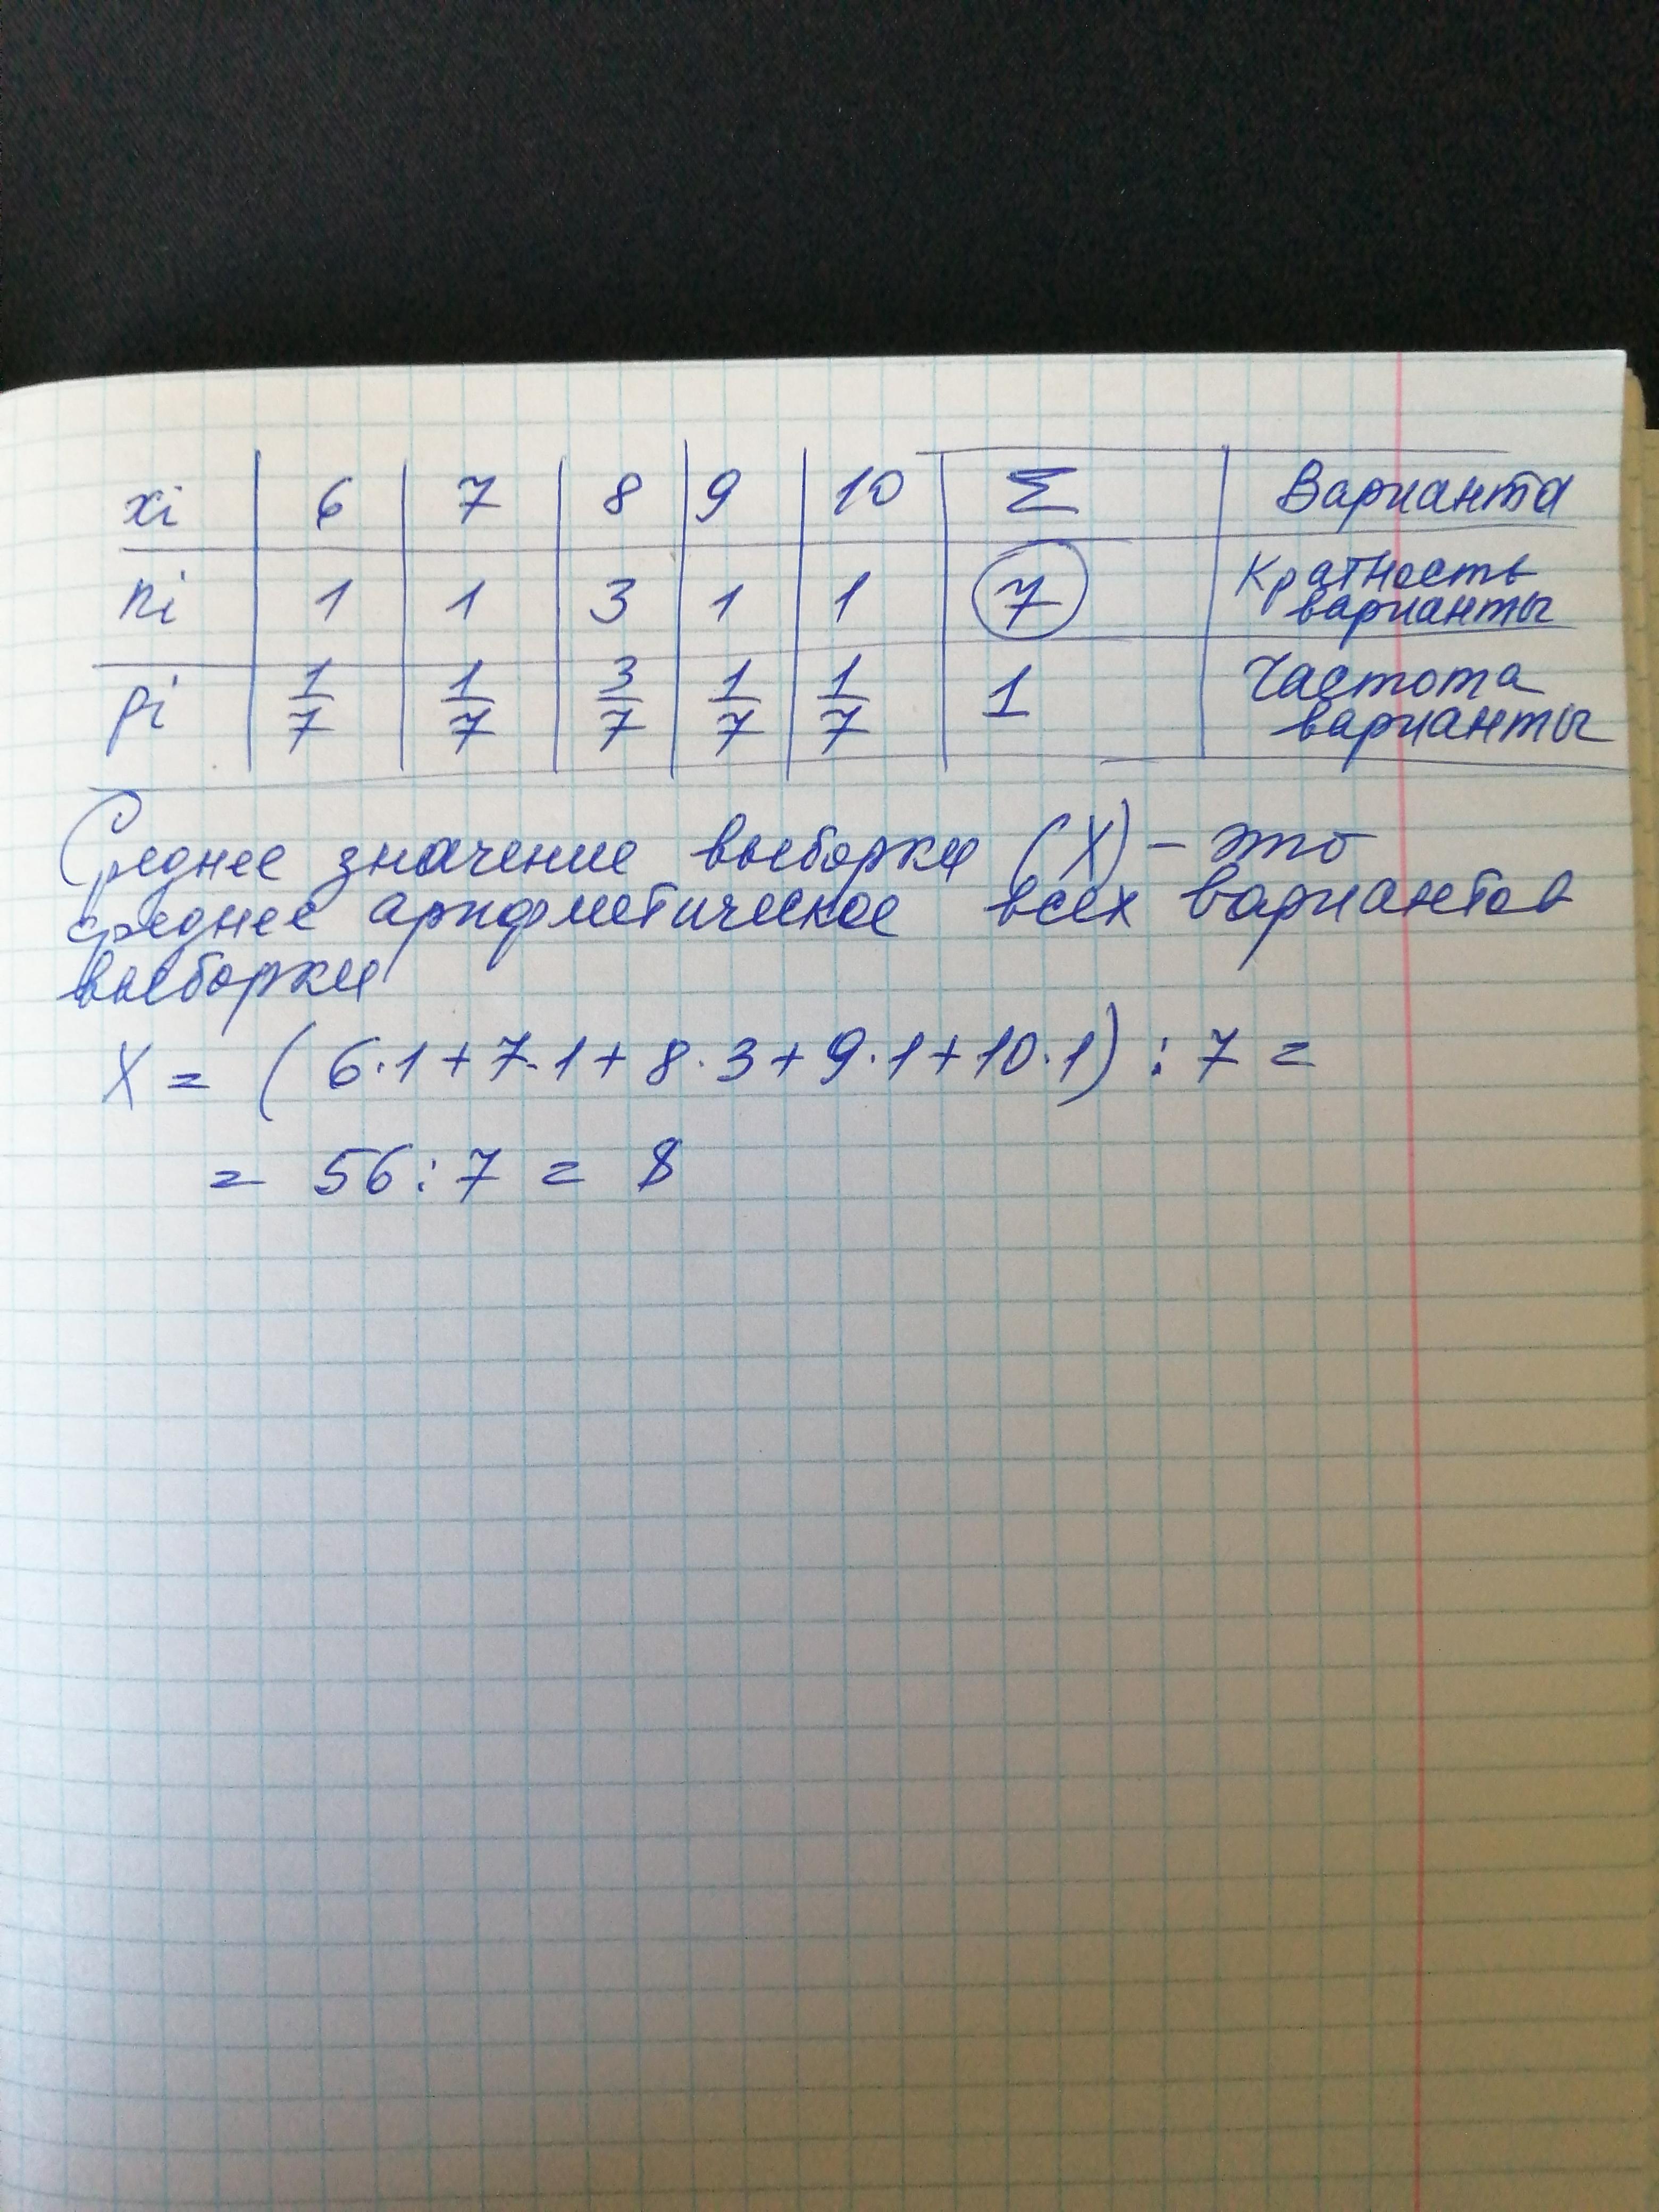 xi 6 7 8 9 10 Σ Варианта
ni 1 1 3 1 1 7 Кратность варианты
pi 1/7 1/7 3/7 1/7 1/7 1 Частота варианты
Среднее значение выборки (X) – это
среднее арифметическое всех вариантов
выборки
X = (6·1+7·1+8·3+9·1+10·1) : 7 =
= 56:7 = 8